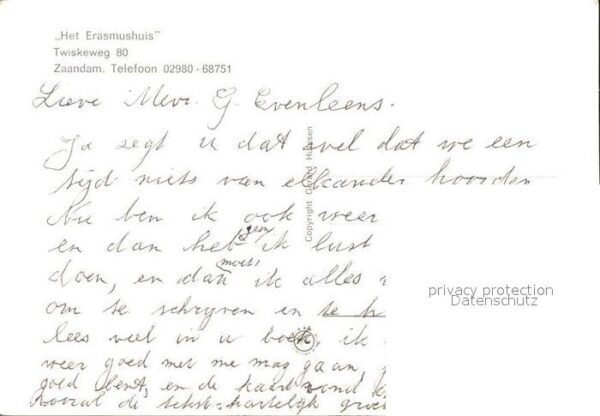 „Het Erasmushuis"
Twiskeweg 80
Zaandam. Telefoon 02980-68751
Lieve Mevr. G. Evenleens.
Ja zegt u dat wel dat we een
tijd niets van elkander hoorden
Nu ben ik ook weer
geen
en dan heb ik lust
moet
doen, en dan ik alles
om te schrijven en te
lees veel in u boek, ik
weer goed met me mag gaan
goed bent, en de kaart vond
vooral de tekst hartelijk
Copyright Gerard Huijssen
privacy protection
Datenschutz